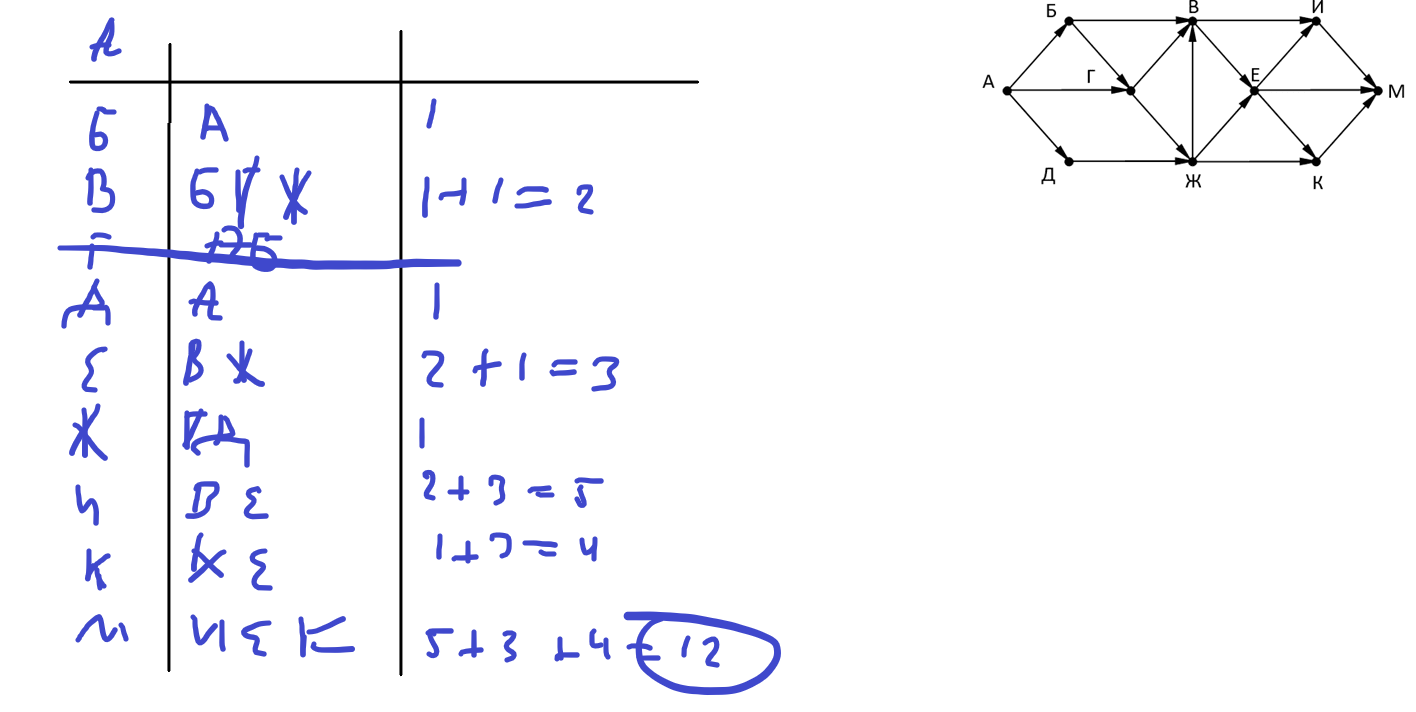 А
Б А 1
В Б Г Ж 1 + 1 = 2
Г
Д А 1
Е В Ж 2 + 1 = 3
Ж Г Д 1
И В Е 2 + 3 = 5
К Ж Е 1 + 3 = 4
М И Е К 5 + 3 + 4 = 12
Б В И
А Г Е М
Д Ж К